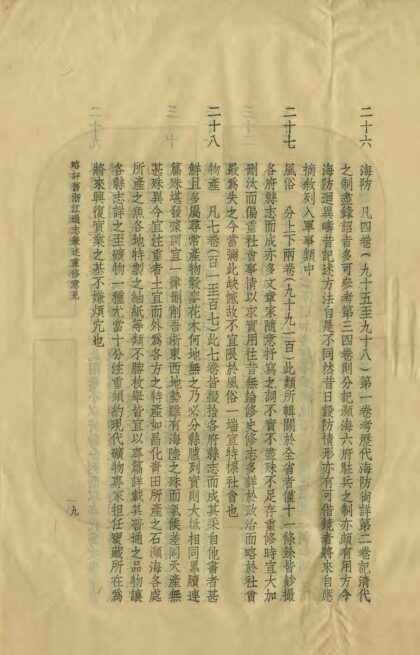 二十六　海防　凡四卷（九十五至九十八）第一卷考歷代海防尙詳第二卷記清代
之制盡錄詔旨多可參考第三四卷則分記瀕海六府駐兵之制亦頗有用方今
海防迥異疇昔記述方法自是不同然昔日設防情形亦有可借鏡者將來自應
摘敘列入軍事類中
二十七　風俗　分上下兩卷（九十九一百）此類所輯關於全省者僅十一條餘皆鈔撮
各府縣志而成亦多文章家隨意抒寫之詞不實不盡殊不足存重修時宜大加
刪汰而偏重社會事情以求實用往昔無論修史修志多詳於政治而略於社會
最爲失之今當彌此缺憾故不宜限於風俗一端宜特標社會也
二十八　物產　凡七卷（百一至百七）此七卷皆掇拾各府縣志而成其采自他書者甚
鮮且多屬尋常產物穀麥花木何地無之乃必分縣臚列實則大抵相同累牘連
篇殊堪發噱謂宜一律刪削吾浙東西地勢雖有海陸之殊而氣候差同天產無
甚殊異今宜注重者土宜而外爲各方之特產如昌化靑田所產之石瀕海各處
所產之魚各地特製之紬紙等類不勝枚舉皆宜以專篇詳載其普通之品物讓
各縣志詳之至礦物一種尤當十分注重須約現代礦物專家担任寶藏所在爲
將來興復實業之基不嫌煩宂也
略評舊浙江通志兼述重修意見
一九